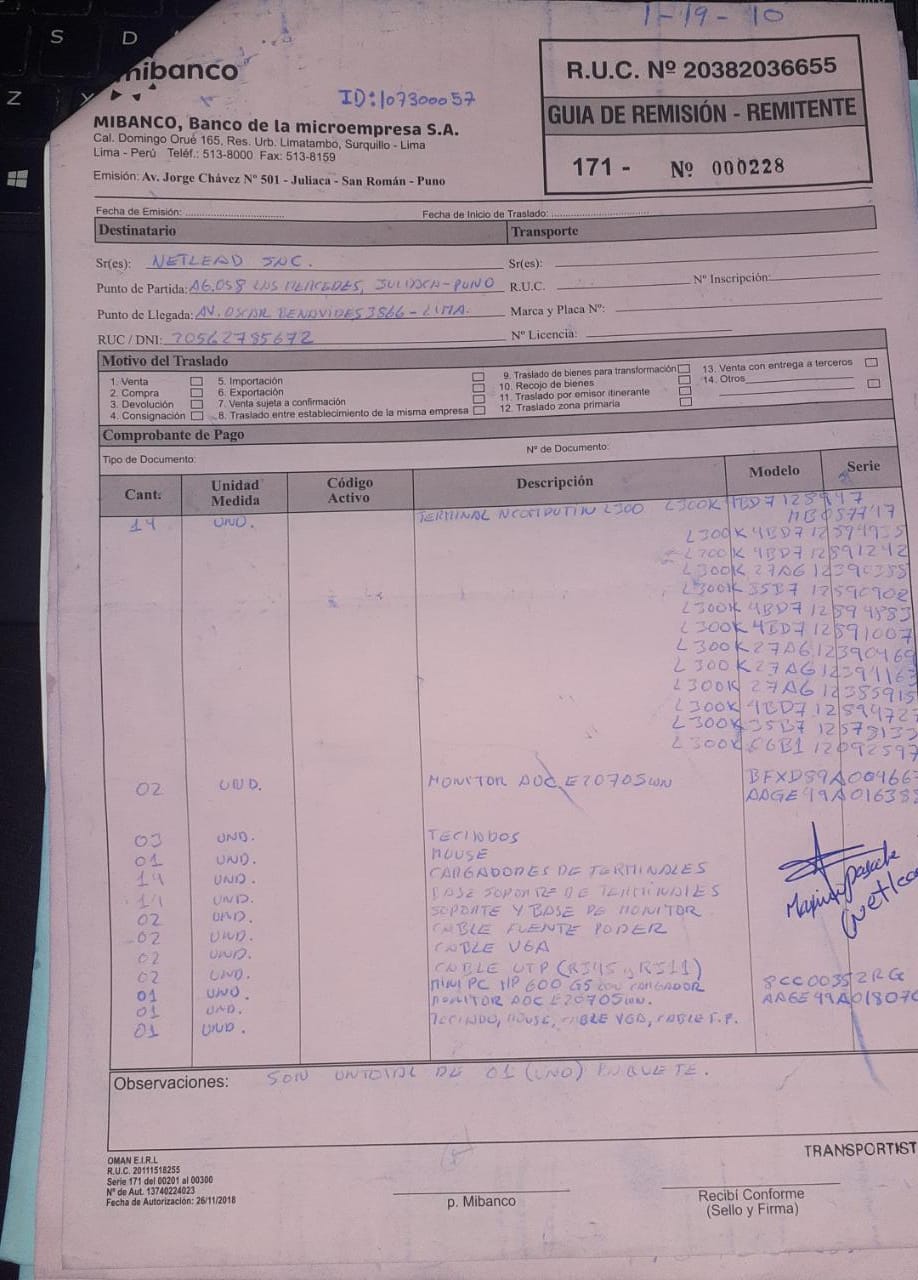 1-19-10
mibanco
ID:10730057
MIBANCO, Banco de la microempresa S.A.
Cal. Domingo Orué 165, Res. Urb. Limatambo, Surquillo - Lima
Lima - Perú Teléf.: 513-8000 Fax: 513-8159
Emisión: Av. Jorge Chávez Nº 501 - Juliaca - San Román - Puno
R.U.C. Nº 20382036655
GUIA DE REMISIÓN - REMITENTE
171 - Nº 000228
Fecha de Emisión: Fecha de Inicio de Traslado:
Destinatario Transporte
Sr(es): NETLEAD INC. Sr(es):
Punto de Partida: LAS MERCEDES, JULIACA-PUNO R.U.C. Nº Inscripción:
Punto de Llegada: AV. OSCAR BENAVIDES 3866 - LIMA. Marca y Placa Nº:
RUC / DNI: 20562785672 Nº Licencia:
Motivo del Traslado
1. Venta 5. Importación 9. Traslado de bienes para transformación 13. Venta con entrega a terceros
2. Compra 6. Exportación 10. Recojo de bienes 14. Otros
3. Devolución 7. Venta sujeta a confirmación 11. Traslado por emisor itinerante
4. Consignación 8. Traslado entre establecimiento de la misma empresa 12. Traslado zona primaria
Comprobante de Pago
Tipo de Documento: Nº de Documento:
Cant. Unidad Medida Código Activo Descripción Modelo Serie
14 UND. TERMINAL NCOMPUTIN L300
L300K 4BD7 12594935
L300K 4BD7 12591242
L300K 27A6 12390388
L300K 35B7 12590902
L300K 4BD7 12594883
L300K 4BD7 12591007
L300K 27A6 12390469
L300K 27A6 12394163
L300K 27A6 12385915
L300K 4BD7 12594727
L300K 35B7 12578133
L300K 66B1 12092597
02 UND. MONITOR AOC E2070SWN BFXD89A004667
AAGE49A016383
03 UND. TECLADOS
01 UND. MOUSE
14 UND. CARGADORES DE TERMINALES
14 UND. BASE SOPORTE DE TERMINALES
02 UND. SOPORTE Y BASE DE MONITOR
02 UND. CABLE FUENTE PODER
02 UND. CABLE VGA
02 UND. CABLE UTP (RJ45 y RJ11)
01 UND. MINI PC HP 600 G5 con CARGADOR 8CC00352RG
01 UND. MONITOR AOC E2070SWN. AAGE49A018070
01 UND. TECLADO, MOUSE, CABLE VGA, CABLE F.P.
Observaciones: SON UN TOTAL DE 01 (UNO) PAQUETE.
TRANSPORTIST
OMAN E.I.R.L
R.U.C. 20111518255
Serie 171 del 00201 al 00300
Nº de Aut. 13740224023
Fecha de Autorización: 26/11/2018
p. Mibanco
Recibí Conforme
(Sello y Firma)